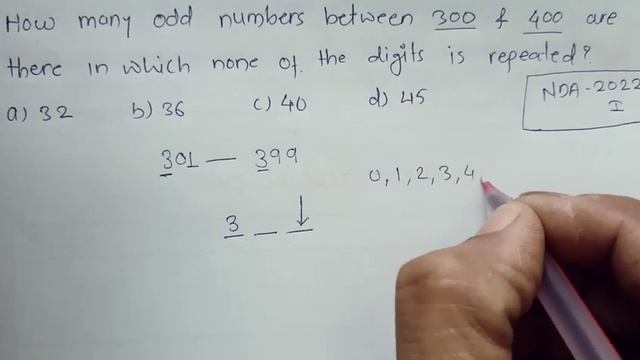 How many odd numbers between 300 & 400 are
there in which none of the digits is repeated?
a) 32 b) 36 c) 40 d) 45
NDA-2022
I
301 — 399
0, 1, 2, 3, 4
3 _ _